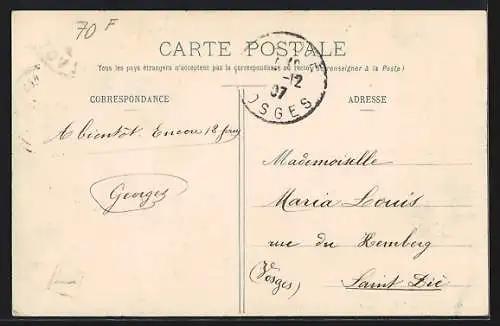 70 F
CARTE POSTALE
Tous les pays étrangers n'acceptent pas la correspondance au recto (se renseigner à la Poste)
CORRESPONDANCE
ADRESSE
-12
07
OSGES
A bientôt. Encore 12 jours
Georges
Mademoiselle
Maria Louis
rue du Kemberg
(Vosges)
Saint Dié